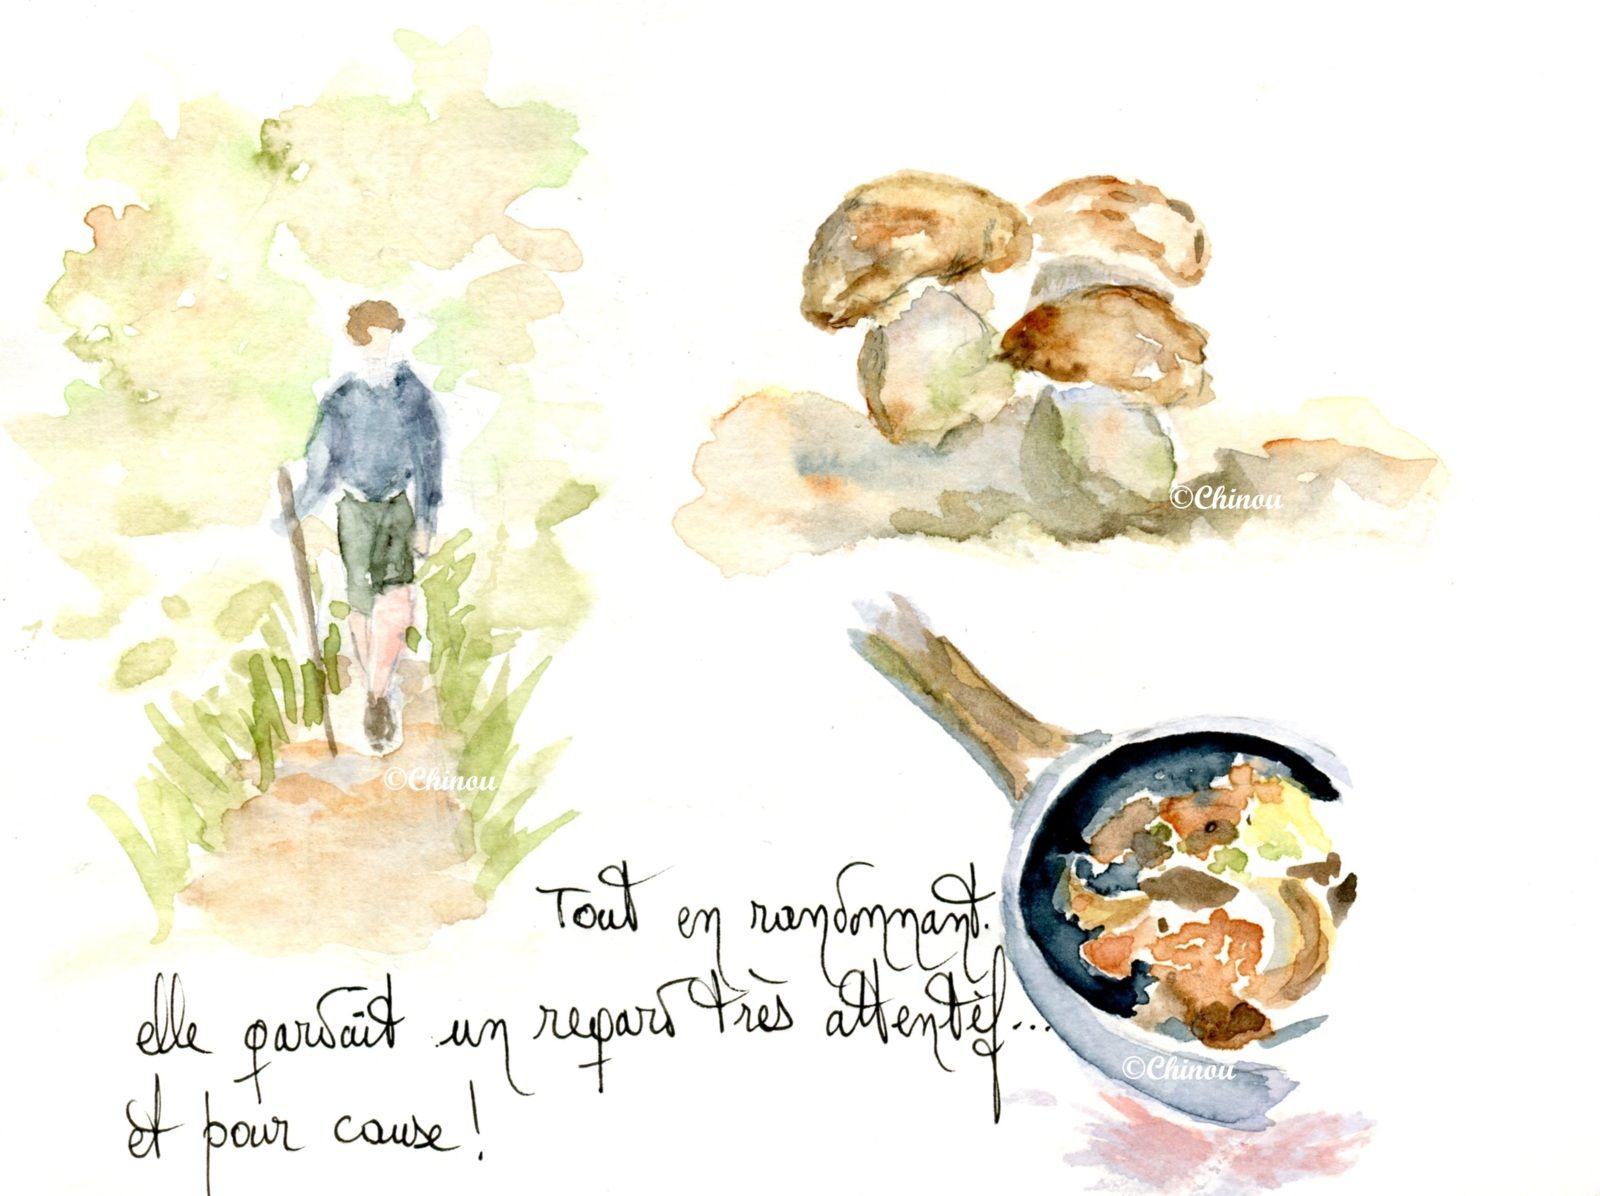 ©Chinou
©Chinou
Tout en randonnant.
elle gardait un regard très attentif...
et pour cause !
©Chinou